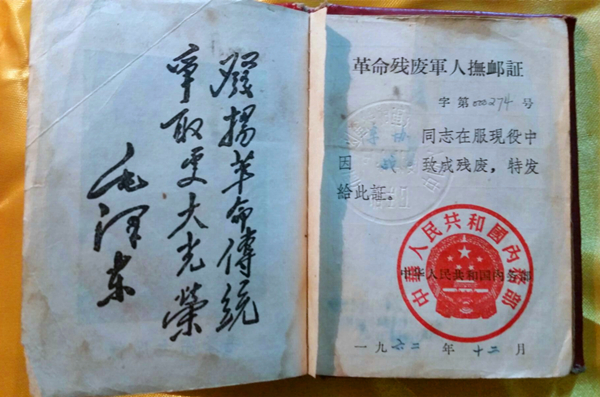 發揚革命傳統
爭取更大光榮
毛澤东
革命残废軍人撫卹証
字第000274号
同志在服現役中
因 致成残废，特发
给此証。
中华人民共和国内务部
中華人民共和國內務部
一九六二年十二月